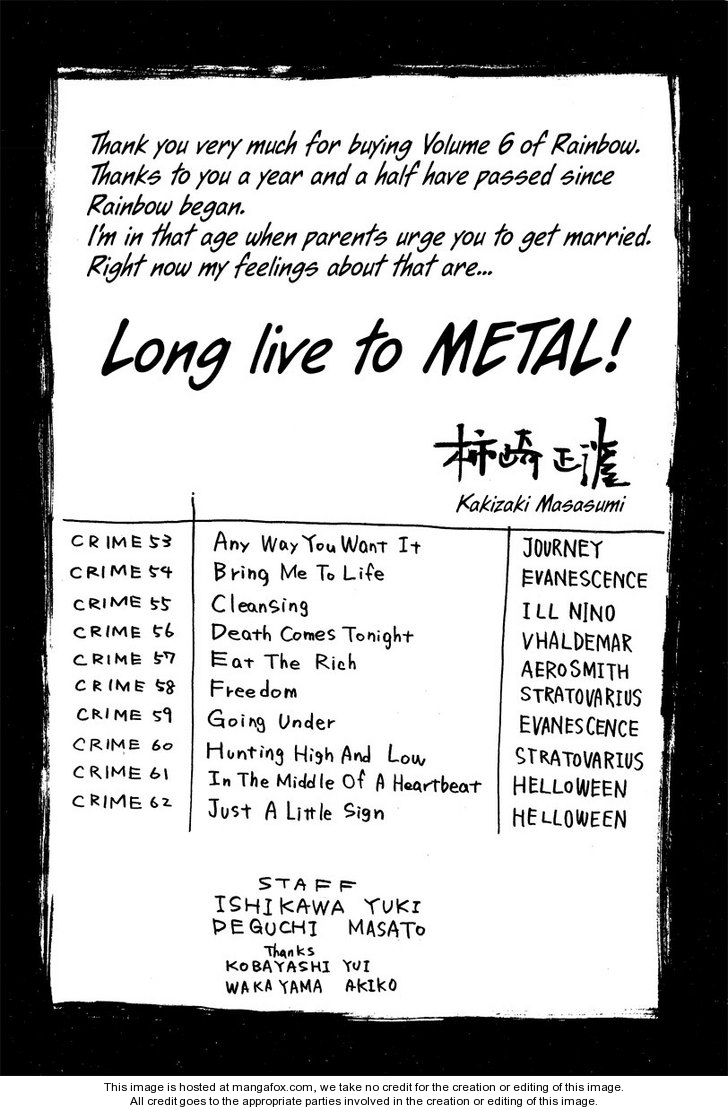 Thank you very much for buying Volume 6 of Rainbow.
Thanks to you a year and a half have passed since
Rainbow began.
I'm in that age when parents urge you to get married.
Right now my feelings about that are...
Long live to METAL!
柿崎正澄
Kakizaki Masasumi
CRIME 53 Any Way You Want It JOURNEY
CRIME 54 Bring Me To Life EVANESCENCE
CRIME 55 Cleansing ILL NINO
CRIME 56 Death Comes Tonight VHALDEMAR
CRIME 57 Eat The Rich AEROSMITH
CRIME 58 Freedom STRATOVARIUS
CRIME 59 Going Under EVANESCENCE
CRIME 60 Hunting High And Low STRATOVARIUS
CRIME 61 In The Middle Of A Heartbeat HELLOWEEN
CRIME 62 Just A Little Sign HELLOWEEN
STAFF
ISHIKAWA YUKI
DEGUCHI MASATO
Thanks
KOBAYASHI YUI
WAKAYAMA AKIKO
This image is hosted at mangafox.com, we take no credit for the creation or editing of this image.
All credit goes to the appropriate parties involved in the creation or editing of this image.